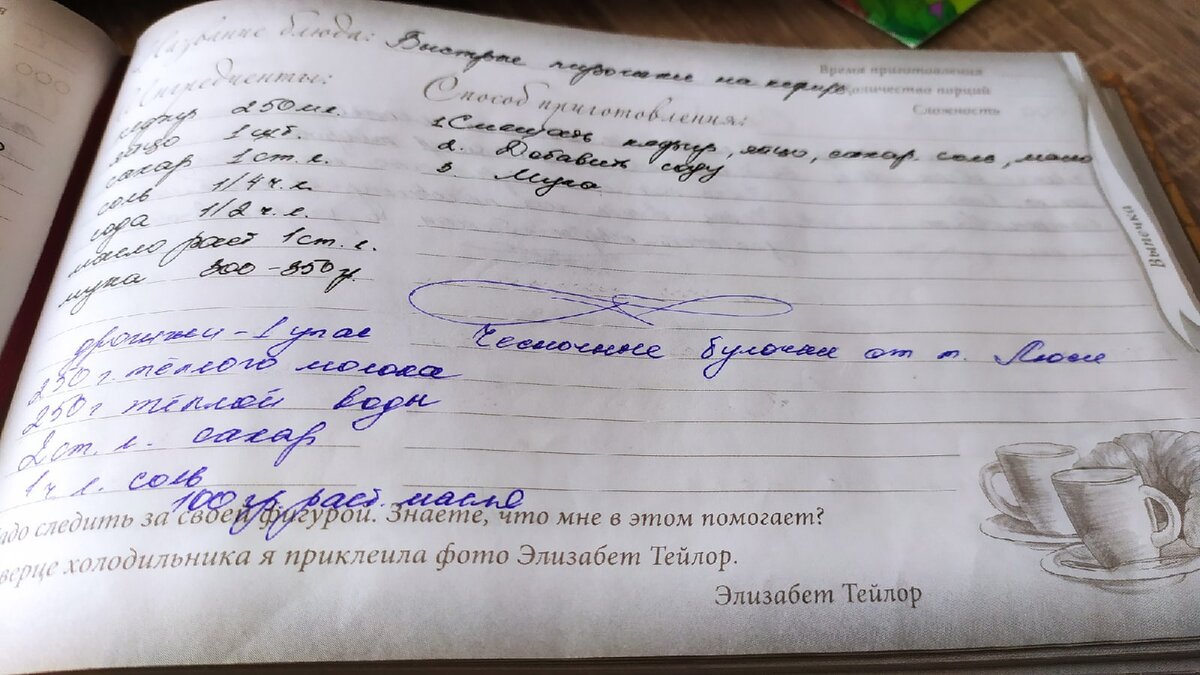 Название блюда: Быстрые пирожки на кефире
Время приготовления
Количество порций
Сложность
Ингредиенты:
Способ приготовления:
кефир 250 мл.
яйцо 1 шт.
сахар 1 ст. л.
соль 1/4 ч. л.
сода 1/2 ч. л.
масло раст 1 ст. л.
мука 300-350 гр.
1 Смешать кефир, яйцо, сахар. соль, масло
2. Добавить соду
3 Мука
Выпечка
дрожжи - 1 упак
250 г. тёплого молока
250 г тёплой воды
2 ст. л. сахар
1 ч л. соль
100 гр раст. масла
Чесночные булочки от т. Люси
надо следить за своей фигурой. Знаете, что мне в этом помогает?
дверце холодильника я приклеила фото Элизабет Тейлор.
Элизабет Тейлор